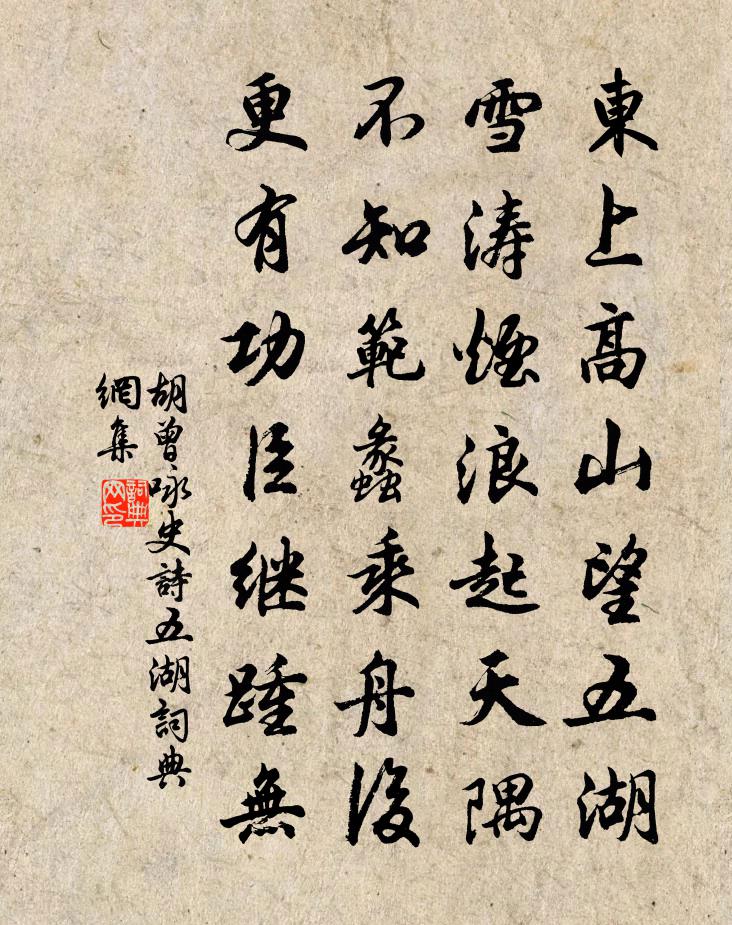 東上高山望五湖
雪涛煙浪起天隅
不知範蠡乘舟後
更有功臣继踵無
胡曾咏史詩五湖詞典
網集
詞典
网印